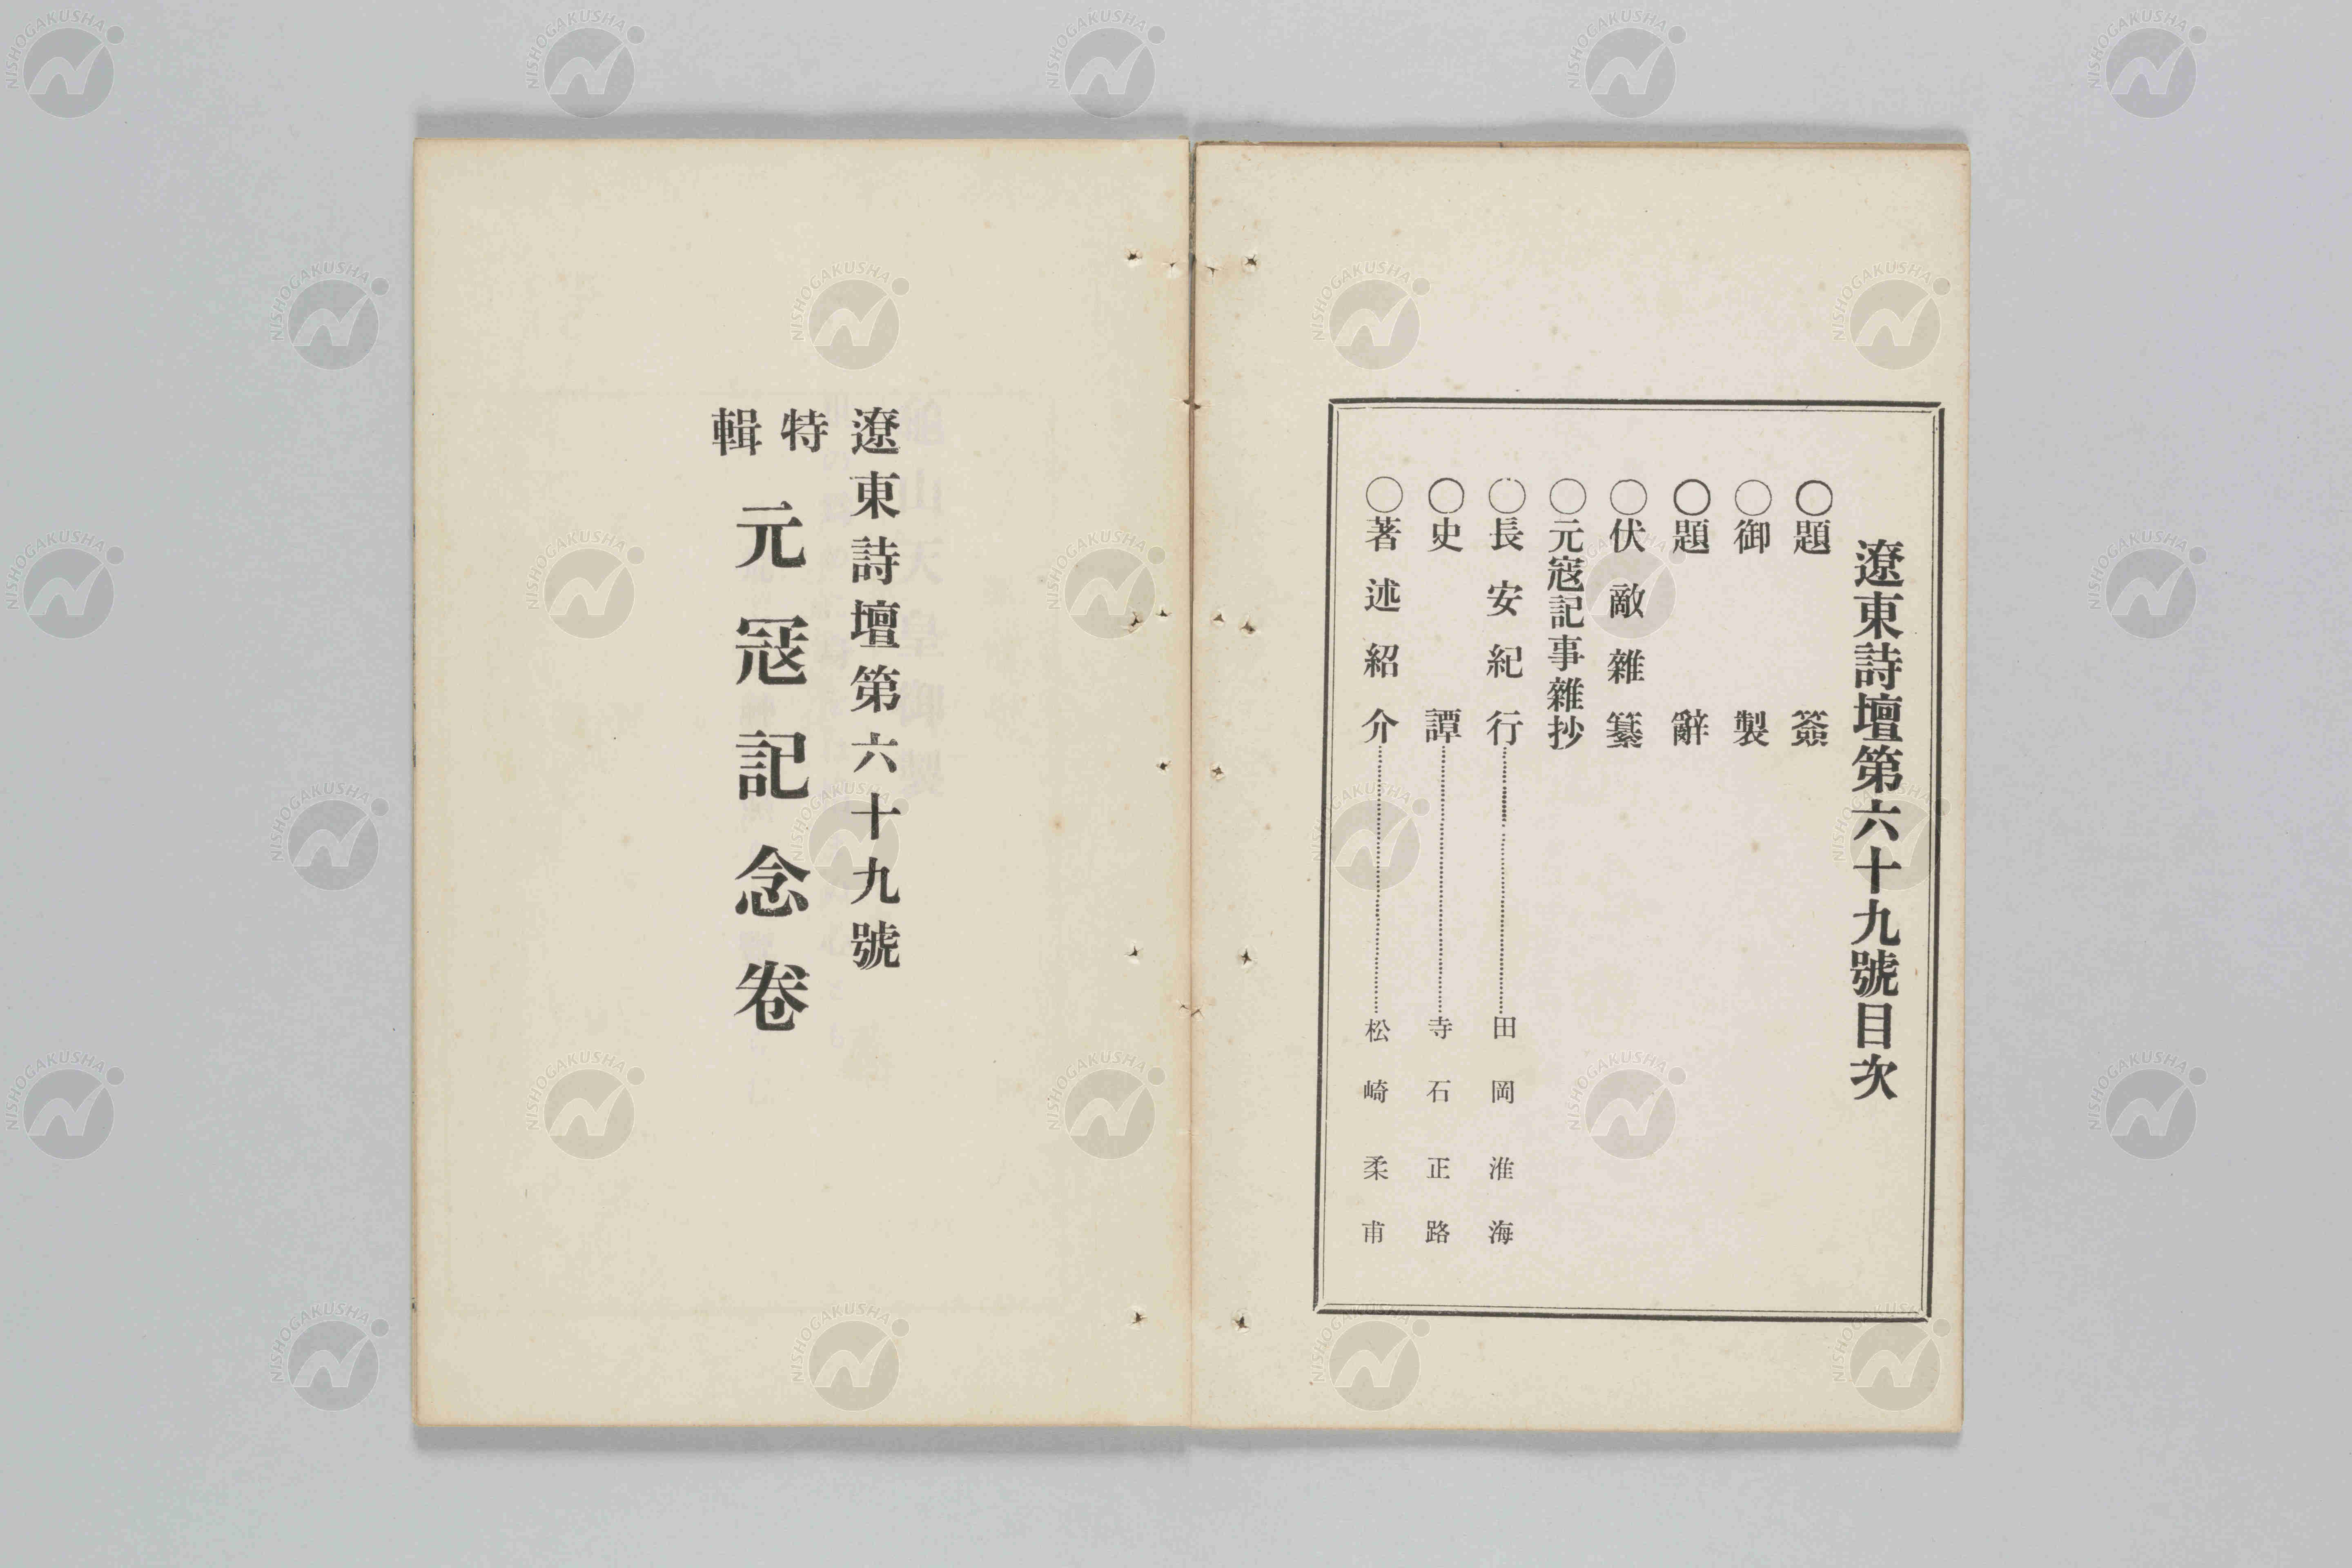 遼東詩壇第六十九號目次
○題簽
○御製
○題辭
○伏敵雜纂
○元寇記事雜抄
○長安紀行………田岡淮海
○史譚………寺石正路
○著述紹介………松崎柔甫
遼東詩壇第六十九號
特輯
元冦記念卷
NISHOGAKUSHA